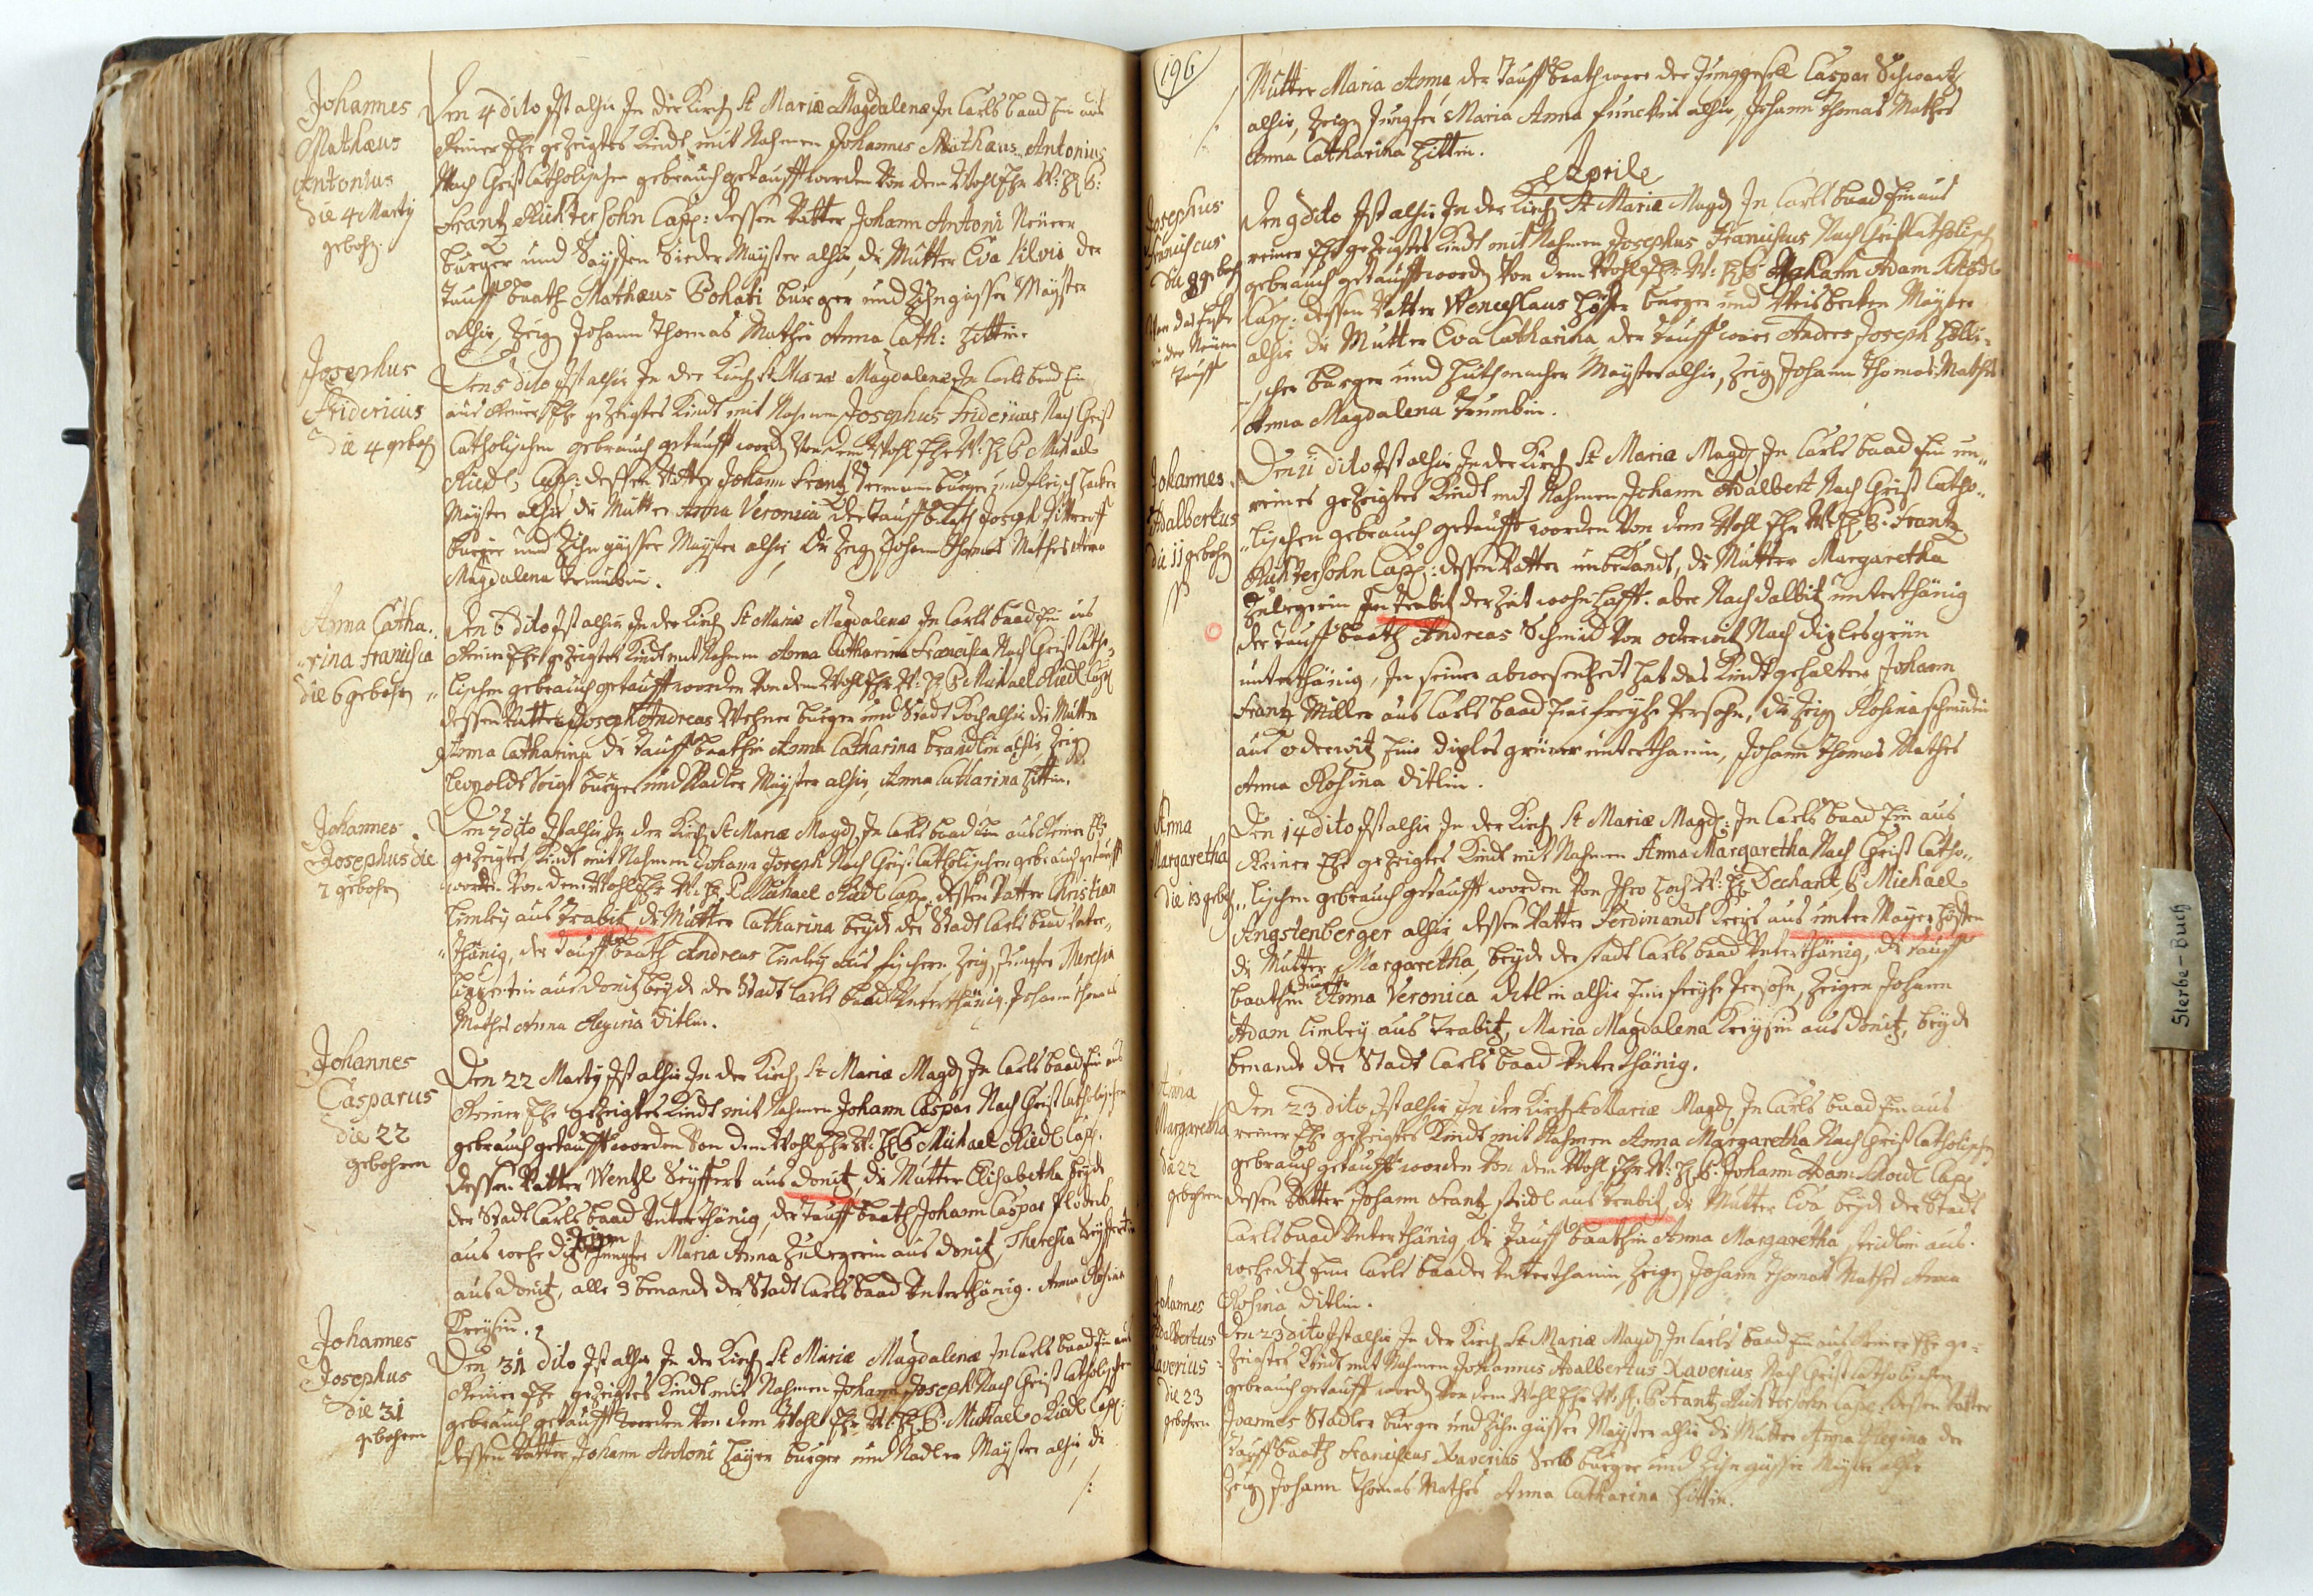 Johannes
Mathæus
Antonius
die 4 Martÿ
gebohr.
Den 4 dito Ist alhir In der Kirch St Mariæ Magdalenæ In Carls baad Ein aus
Reiner Ehe gezeigtes Kindt mit Nahmen Johannes Mathæus Antonius
Nach Christ Catholischen gebrauch getaufft worden Von dem Wohl Ehr W: H: P:
Frantz Richtersohn Capp: dessen Vatter Johann Antoni
burger und Saÿffen Sieder Maÿster alhir, die Mutter Eva der
Tauff baath Mathæus burger und Zihngisser Maÿster
alhir, Zeig Johann Thomas Mathes Anna Cath: Zittin.
Josephus
Fridericus
Die 4 geboh
Den 5 dito Ist alhir In der Kirch St Mariæ Magdalenæ In Carls baad Ein
aus Reiner Ehe gezeigtes Kindt mit Nahmen Josephus Fridericus Nach Christ
Catholischen gebrauch getaufft word Von dem Wohl Ehr W: H P Michael
Riedl Capp: dessen Vatter Johann Frantz burger und fleisch hacker
Maÿster alhir die Mutter Anna Veronica der Tauff baath Joseph
burger und Zihn gisser Maÿster alhir, die Zeig Johann Thomas Mathes Anna
Magdalena
Anna Catha..
rina Francisca
die 6 gebohrn
Den 6 dito Ist alhir In der Kirch St Mariæ Magdalenæ In Carls baad Ein aus
Reiner Ehe gezeigtes Kindt mit Nahmen Anna Catharina Francisca Nach Christ Catho
lischen gebrauch getaufft worden Von dem Wohl Ehr W: H P Michael Riedl Capp
dessen Vatter Joseph Andreas burger und Stadt Koch alhir die Mutter
Anna Catharina die Tauff baathin Anna Catharina alhir Zeig
Leopoldt burger und Nadler Maÿster alhir, Anna Catharina Zittin.
Johannes
Josephus die
7 gebohrn
Den 7 dito Ist alhir In der Kirch St Mariæ Magd In Carls baad Ein aus Reiner Ehe
gezeigtes Kindt mit Nahmen Johann Joseph Nach Christ Catholischen gebrauch getaufft
worden Von dem Wohl Ehr W: H: P. Michael Riedl Capp: dessen Vatter Christian
Limleÿ aus Trabitz die Mutter Catharina beÿde der Stadt Carls baad Unter
thänig, der Tauff baath Andreas Limleÿ aus fischern Zeig Jungfer Theresia
aus donitz beÿde der Stadt Carls baad Unterthänig. Johann Thomas
Mathes Anna Regina Ditlin.
Johannes
Casparus
die 22
gebohren
Den 22 Martÿ Ist alhir In der Kirch St Mariæ Magd In Carls baad Ein aus
Reiner Ehe gezeigtes Kindt mit Nahmen Johann Caspar Nach Christ Catholischen
gebrauch getaufft worden Von dem Wohl Ehr W: H P Michael Riedl Capp.
dessen Vatter Wentzl Seÿffert aus donitz, die Mutter Elisabetha beÿde
der Stadt Carls baad Unterthänig, der Tauff baath Johann Caspar
aus Zeigen Jungfer Maria Anna Zulegerin aus donitz, Theresia Seÿffertin
aus donitz, alle 3 benande der Stadt Carls baad Unterthänig. Anna Rosina
Kreÿsin.
Johannes
Josephus
die 31
gebohren
Den 31 dito Ist alhir In der Kirch St Mariæ Magdalenæ In Carls baad Ein aus
Reiner Ehe gezeigtes Kindt mit Nahmen Johann Joseph Nach Christ Catholischen
gebrauch getaufft worden Von dem Wohl Ehr W: H P: Michael Riedl Capp:
dessen Vatter Johann Antoni burger und Nadler Maÿster alhir, die
196
Mutter Maria Anna, der Tauff baath ware der Junggesell Caspar Schwartz
alhir, Zeig Jungfer Maria Anna Funckin alhir, Johann Thomas Mathes
Anna Catharina Zittin.
Aprile
Josephus
Franciscus
die 9 geboh
in der Neuen
Tauff
Den 9 dito Ist alhir In der Kirch St Mariæ Magd In Carls baad Ein aus
reiner Ehe gezeigtes Kindt mit Nahmen Josephus Franciscus Nach Christ Catholisch
gebrauch getaufft word Von dem Wohl Ehr W: H P Johann Adam Riedl
Capp: dessen Vatter Wenceslaus burger und Weisbecken Maÿster
alhir die Mutter Eva Catharina der Tauff ware Andres Joseph
scher burger und Huthmacher Maÿster alhir, Zeig Johann Thomas Mathes
Anna Magdalena
Johannes
Adalbertus
die 11 gebohrn
Den 11 dito Ist alhir In der Kirch St Mariæ Magd In Carls baad Ein un
reines gezeigtes Kindt mit Nahmen Johann Adalbert Nach Christ Catho
lischen gebrauch getaufft worden Von dem Wohl Ehr W: H P. Frantz
Richtersohn Capp: dessen Vatter unbekandt, die Mutter Margaretha
Zulegerin In Trabitz der Zeit wohnhafft. aber Nach dalbitz unterthänig
der Tauff baath Andreas Schmid Von oderwitz Nach diglesgrün
unterthänig, In seiner abwesenheit hat das Kindt gehalten Johann
Frantz Miller aus Carls baad Eine freÿhe Persohn, die Zeig Rosina Schmidin
aus oderwitz Eine diglesgrüner unterthanin, Johann Thomas Mathes
Anna Rosina Ditlin.
Anna
Margaretha
Die 13 geboh
Den 14 dito Ist alhir In der Kirch St Mariæ Magd: In Carls baad Ein aus
Reiner Ehe gezeigtes Kindt mit Nahmen Anna Margaretha Nach Christ Catho
lischen gebrauch getaufft worden Von Ihro Hoch W: H Dechant P Michael
Angstenberger alhir dessen Vatter Ferdinandt Kreÿs aus unter Maÿer höffen
die Mutter Margaretha, beÿde der Stadt Carls baad Unterthänig, die Tauff
baathin Anna Veronica Ditlin alhir Eine freÿhe Persohn, Zeigen Johann
Adam Limleÿ aus Trabitz, Maria Magdalena Kreÿsin aus donitz, beÿde
benande der Stadt Carls baad Unterthänig.
Anna
Margaretha
die 22
gebohren
Den 23 dito Ist alhir In der Kirch St Mariæ Magd In Carls baad Ein aus
reiner Ehe gezeigtes Kindt mit Nahmen Anna Margaretha Nach Christ Catholischen
gebrauch getaufft worden Von dem Wohl Ehr W: H P: Johann Adam Riedl Capp
dessen Vatter Johann Frantz aus Trabitz, die Mutter Eva beÿde der Stadt
Carls baad Unterthänig die Tauff baathin Anna Margaretha aus
Eine Carls baader Unterthanin Zeige Johann Thomas Mathes Anna
Rosina Ditlin.
Johannes
Adalbertus
Xaverius
Die 23
gebohren
Den 23 dito Ist alhir In der Kirch St Mariæ Magd, In Carls baad Ein aus Reiner Ehe ge
zeigtes Kindt mit Nahmen Johannes Adalbertus Xaverius Nach Christ Catholischen
gebrauch getaufft word Von dem Wohl Ehr W: H: P Frantz Richtersohn Capp: dessen Vatter
Joannes Stadler burger und Zihn gisser Maÿster alhir die Mutter Anna Regina der
Tauff baath Franciscus Xaverius burger und Zihn gisser Maÿster alhir
Zeig Johann Thomas Mathes Anna Catharina Zittin.
Sterbe-Buch